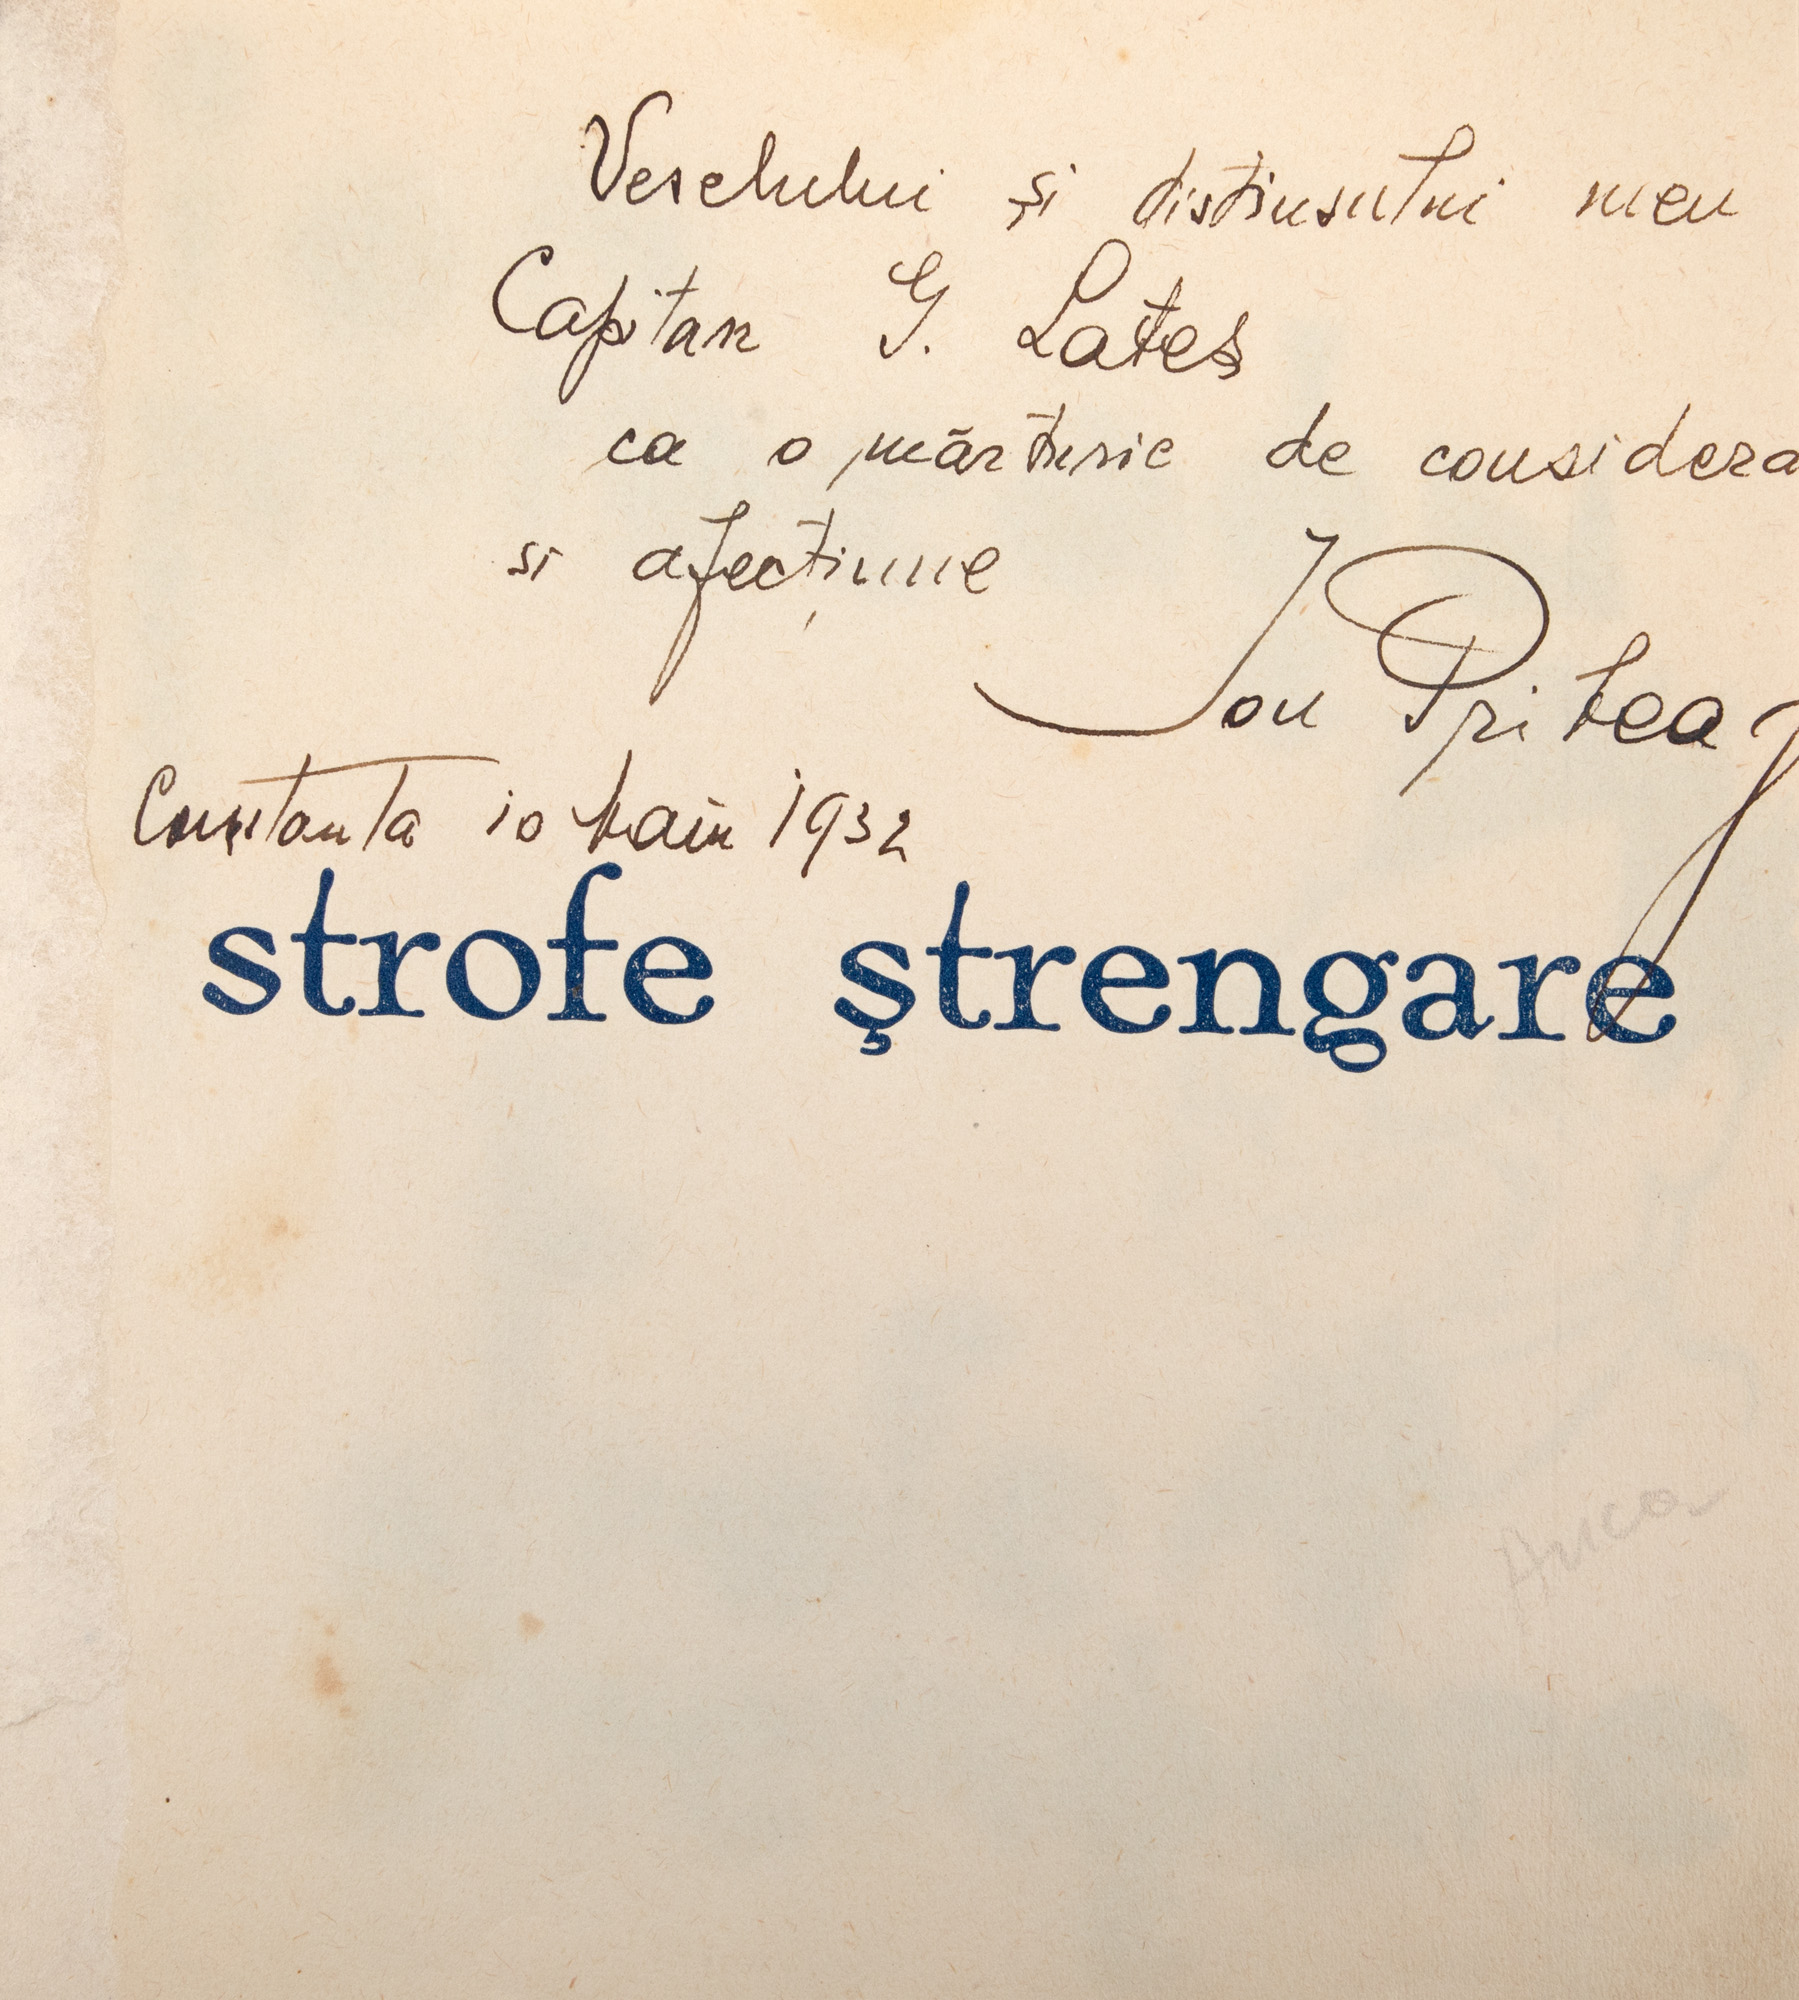 Veselului și distinsului meu
Capitan G. Lates
ca o mărturie de considera
si afecțiune
Ion Pribeagu
Constanta 10 Main 1932
strofe ștrengare
Anca